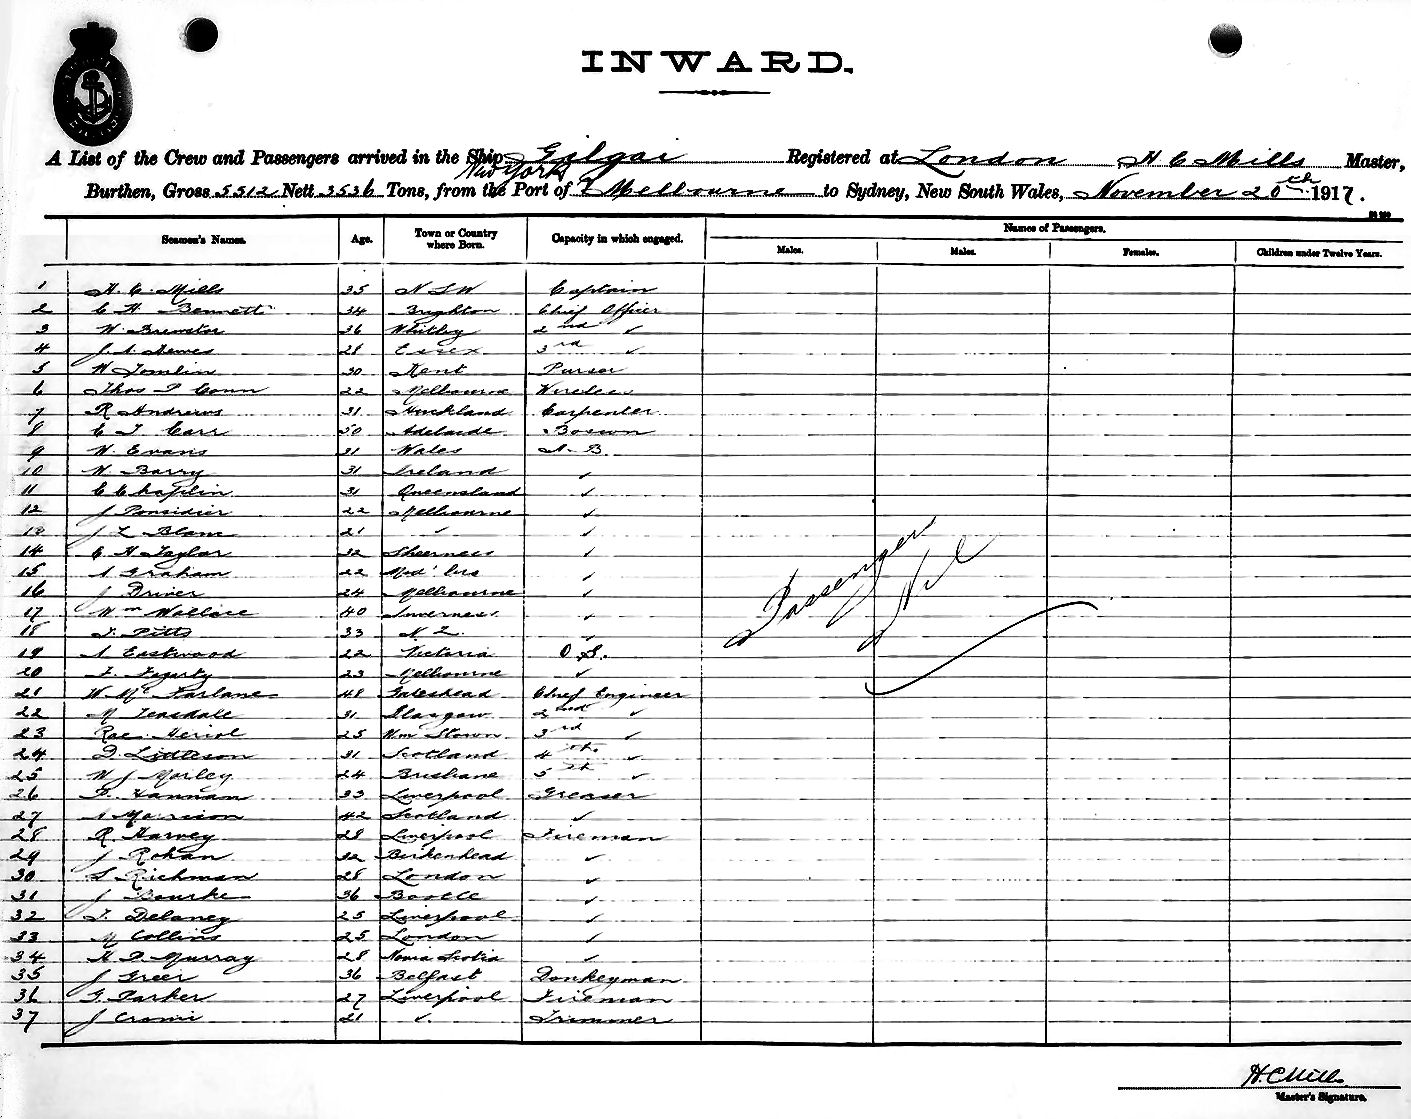 INWARD.
A List of the Crew and Passengers arrived in the Ship Gilgai Registered at London H C Mills Master,
New York
Burthen, Gross 5512 Nett 3536 Tons, from the Port of & Melbourne to Sydney, New South Wales, November 20th 1917.
Names of Passengers.
Seamen's Names. Age. Town or Country where Born. Capacity in which engaged. Males. Males. Females. Children under Twelve Years.
1 H. C. Mills 35 N S W Captain
2 C H Bennett 34 Brighton Chief Officer
3 W Brewster 36 Whitley 2nd ✓
4 J. A. Hewes 28 Essex 3rd ✓
5 W Tomlin 30 Kent Purser
6 Thos P Conn 22 Melbourne Wireless
7 R Andrews 31 Auckland Carpenter
8 C J Carr 50 Adelaide Boswn
9 W. Evans 31 Wales A. B.
10 W Barry 31 Ireland ✓
11 C Chaplin 31 Queensland ✓
12 J Ponsidier 22 Melbourne ✓
13 J L Blam 21 ✓ ✓
14 C H Taylor 32 Sheerness ✓
15 A Graham 22 ✓
16 J Driver 24 Melbourne ✓
17 Wm Wallace 40 Inverness ✓
18 T. Pitts 33 N Z. ✓
19 A Eastwood 22 Victoria O S.
20 F. Fogarty 23 Melbourne ✓
21 W McFarlane 48 Gateshead Chief Engineer
22 M Teasdale 31 Glasgow 2nd ✓
23 Rae Heriot 25 Wm Stown 3rd ✓
24 D. Liddleson 31 Scotland 4th ✓
25 W J Morley 24 Brisbane 5th ✓
26 P. Hannam 33 Liverpool Greaser
27 A Morrison 42 Scotland ✓
28 R. Harvey 28 Liverpool Fireman
29 J Rohan 32 Birkenhead ✓
30 S Richman 28 London ✓
31 J Bourke 36 Bootle ✓
32 T. Delaney 25 Liverpool ✓
33 M Collins 25 London ✓
34 H P Murray 28 Nova Scotia ✓
35 J Greer 36 Belfast Donkeyman
36 G. Parker 27 Liverpool Fireman
37 J Cromi 21 ✓ Trimmer
Passengers Nil
H. C Mills
Master's Signature.